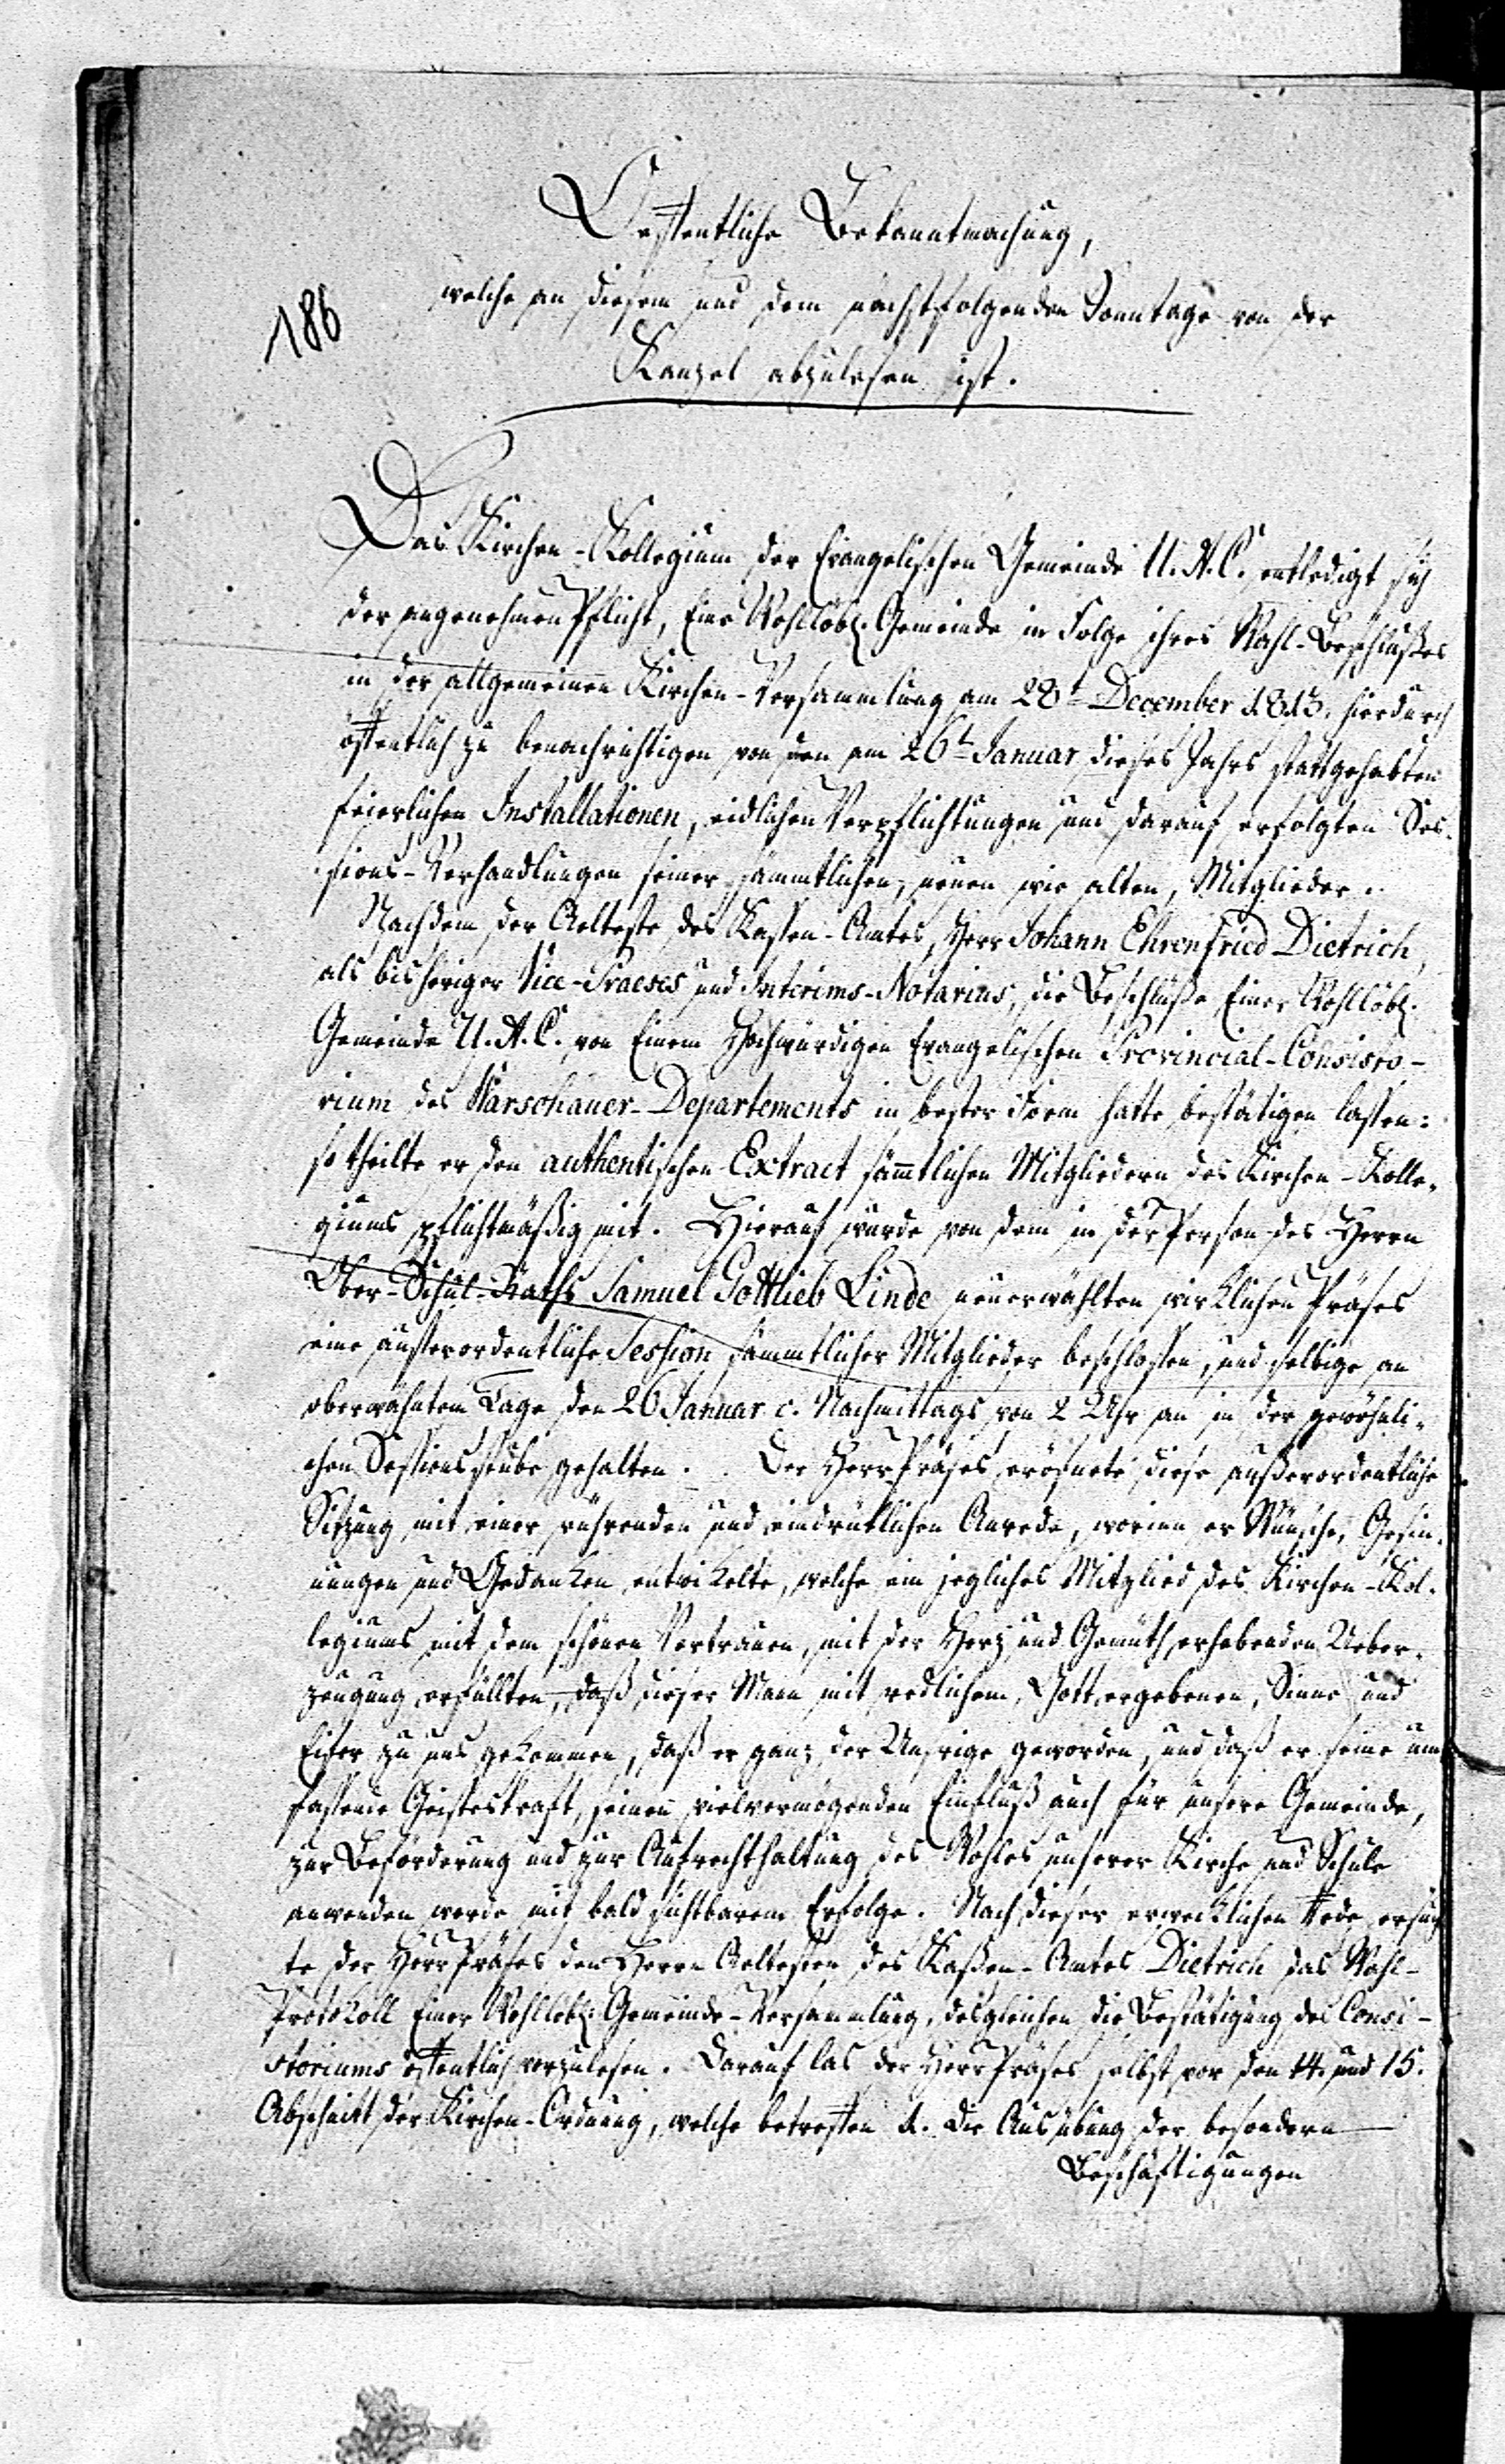 Oeffentliche Bekanntmachung,
welche an diesem und dem nächstfolgenden Sonntage von der
186
Kanzel abzulesen ist.
Das Kirchen-Kollegium der Evangelischen Gemeinde U. A. C. entledigt sich
der angenehmen Pflicht, Eine Wohllöbl. Gemeinde in Folge ihres Wahl-Beschlußes
in der allgemeinen Kirchen-Versammlung am 28t December 1813. hierdurch
öffentlich zu benachrichtigen von den am 26t Januar dieses Jahrs stattgehabten
feierlichen Installationen, eidlichen Verpflichtungen und darauf erfolgten Ses-
sions-Verhandlungen seiner sämmtlichen, neuen wie alten, Mitglieder.
Nachdem der Aelteste des Kassen-Amtes, Herr Johann Ehrenfried Dietrich,
als bisheriger Vice-Praeses und Interims-Notarius, die Beschlüße Einer Wohllöbl.
Gemeinde U. A. C. von Einem Hochwürdigen Evangelischen Provincial-Consisto-
rium des Warschauer-Departements in bester Form hatte bestätigen lassen:
so theilte er den authentischen Extract sämtlichen Mitgliedern des Kirchen-Kolle-
giums pflichtmäßig mit. Hierauf wurde von dem in der Person des Herrn
Ober-Schul-Raths Samuel Gottlieb Linde neuerwählten wirklichen Präses
eine ausserordentliche Session sämmtlicher Mitglieder beschlossen, und selbige an
oberwähntem Tage den 26 Januar c. Nachmittags von 2 Uhr an in der gewöhnli-
chen Sessionsstube gehalten. Der Herr Präses eröfnete diese außerordentliche
Sitzung mit einer rührenden und eindrüklichen Anrede, worinn er Wünsche, Gesin-
nungen und Gedanken entwikelte, welche ein jegliches Mitglied des Kirchen-Kol-
legiums mit dem schönen Vertrauen, mit der Herz und Gemüth erhebenden Ueber-
zeugung erfüllten, daß dieser Mann mit redlichem, Gott ergebenen, Sinne und
Eifer zu uns gekommen, daß er ganz der Unsrige geworden, und daß er seine um-
fassende Geisteskraft, seinen vielvermögenden Einfluß auch für unsere Gemeinde,
zur Beförderung und zur Aufrechthaltung des Wohles unserer Kirche und Schule
anwenden werde mit bald sichtbarem Erfolge. Nach dieser erwecklichen Rede ersuch-
te der Herr Präses den Herrn Aeltesten des Kaßen-Amtes Dietrich das Wahl-
Protokoll Einer Wohllöbl. Gemeinde-Versammlung, desgleichen die Bestätigung des Consi-
storiums öffentlich vorzulesen. Darauf las der Herr Präses selbst vor den 14. und 15.
Abschnitt der Kirchen-Ordnung, welche betreffen 1. Die Ausübung der besondern
Beschäftigungen